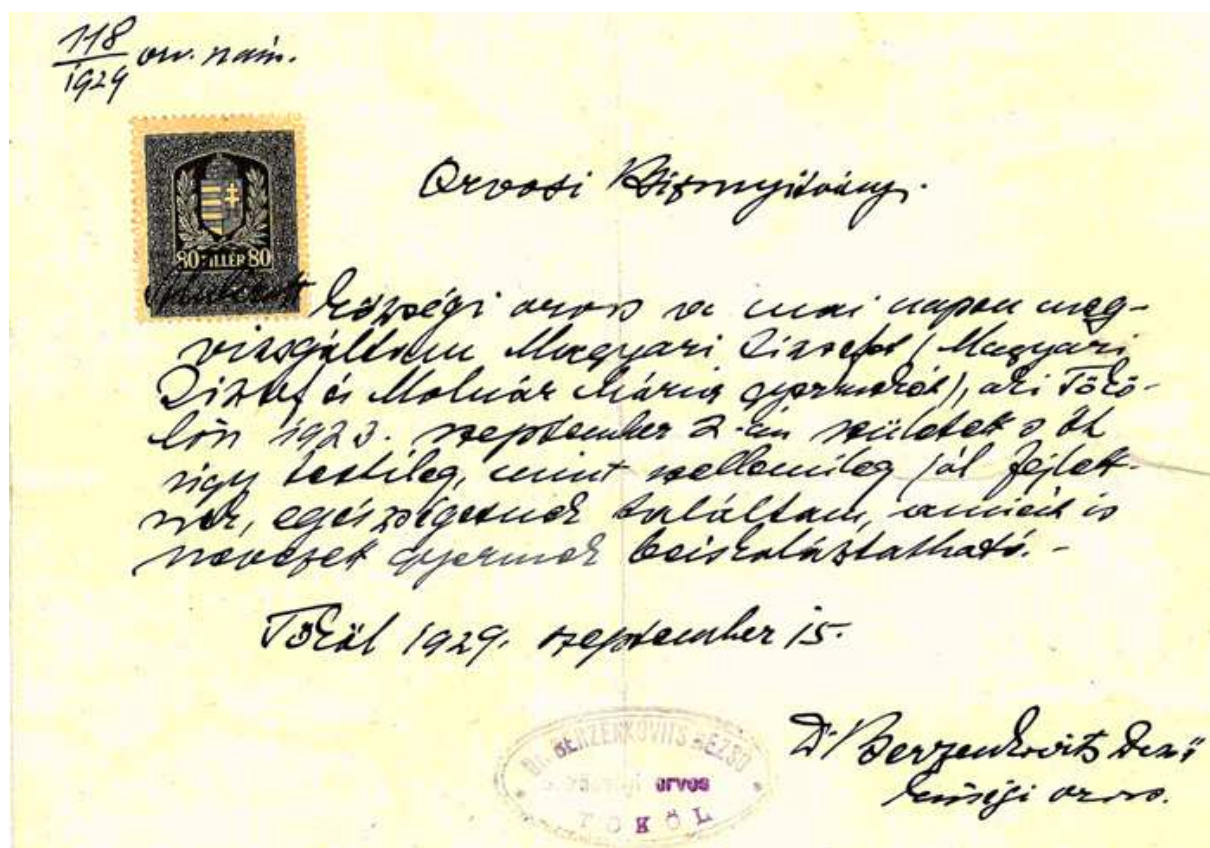 118
1929 orv. szám.
80 FILLÉR 80
Orvosi Bizonyitvány.
Alulirott községi orvos a mai napon meg-
vizsgáltam Magyari Józsefet (Magyari
József és Molnár Mária gyermekét), aki Tökö-
lön 1923. szeptember 2-án született s őt
úgy testileg, mint szellemileg jól fejlett-
nek, egészségesnek találtam, amiért is
nevezett gyermek beiskoláztatható. -
Tököl 1929. szeptember 15.
Dr. Berzenkovits Dezső
községi orvos.
Dr. BERZENKOVITS DEZSŐ
községi orvos
TÖKÖL